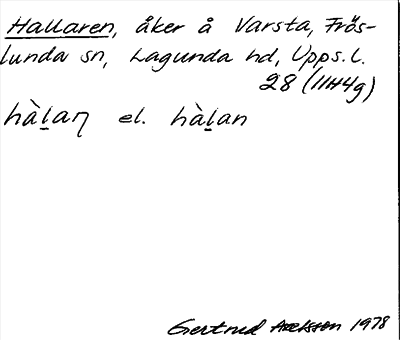 Hallaren, åker å Varsta, Frös-
lunda sn, Lagunda hd, Upps.l.
28 (11H4g)
hàḻaꞑ el. hàḻan
Gertrud Axelsson 1978